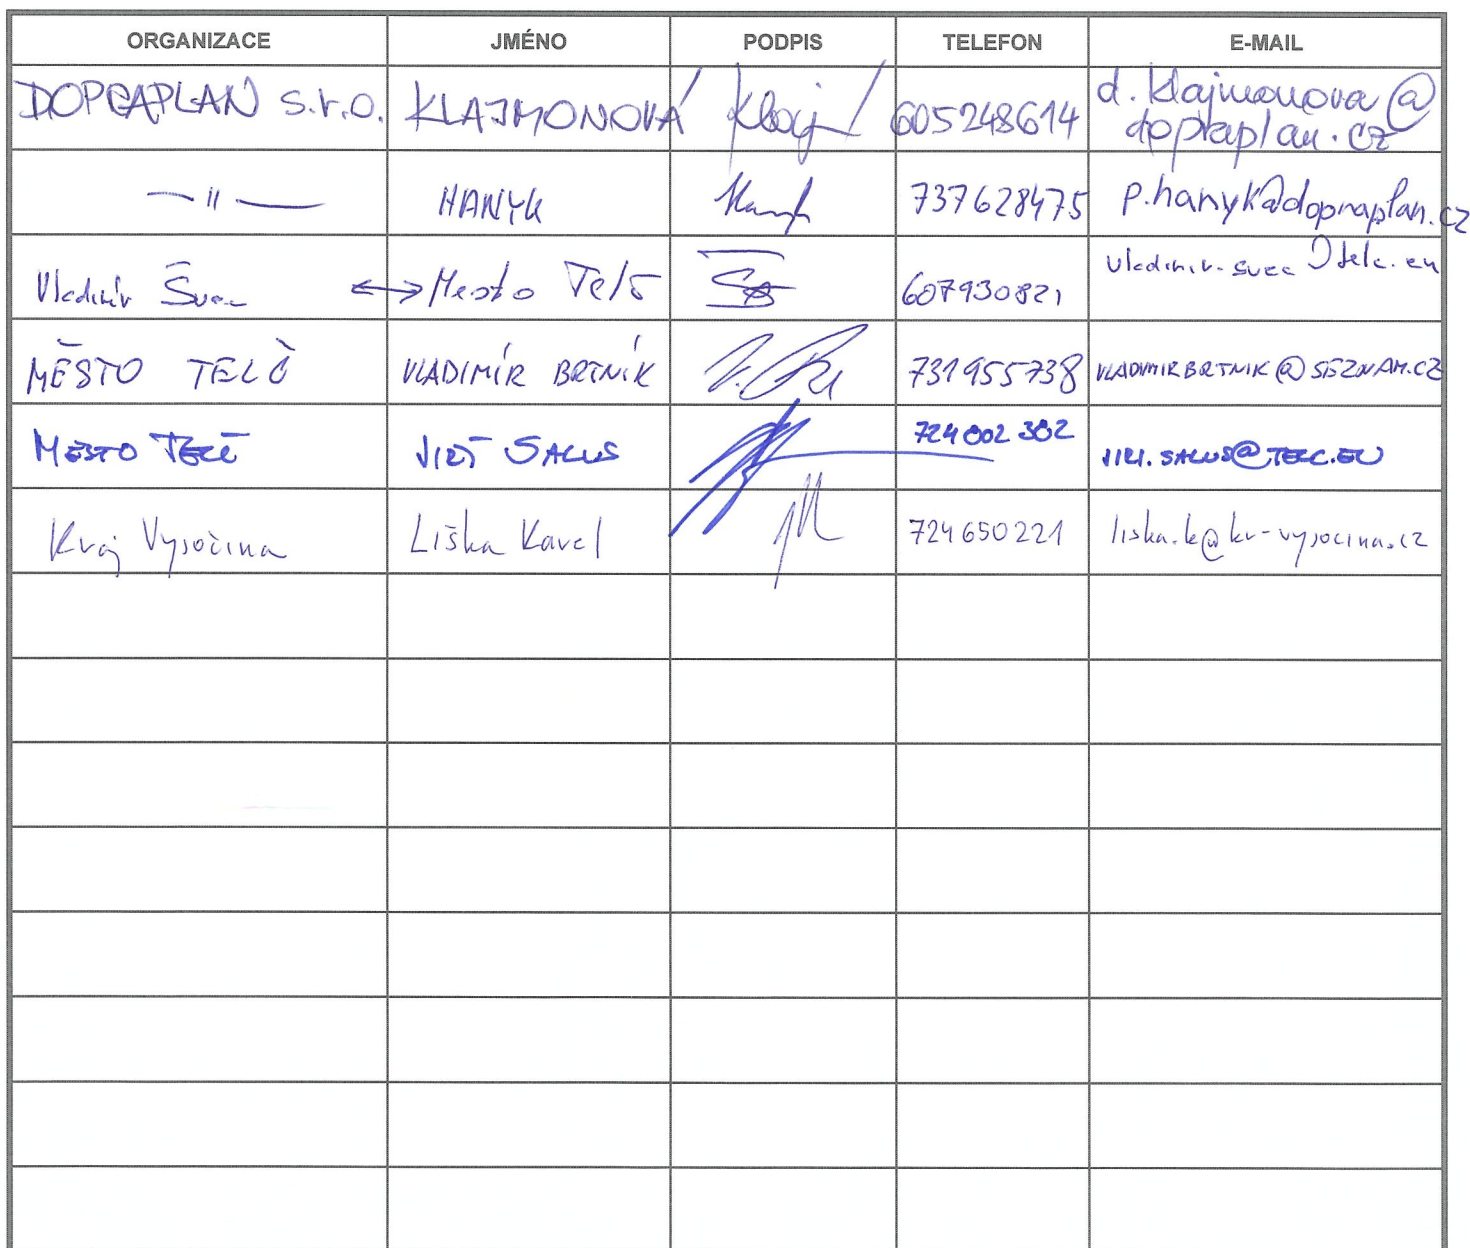 ORGANIZACE JMÉNO PODPIS TELEFON E-MAIL
DOPRAPLAN s.r.o. KLAJMONOVÁ 605248614 d.klajmonova@
dopraplan.cz
— 〃 — HANYK 737628475 p.hanyk@dopraplan.cz
Vladimír Švec ↔ Mesto Telč 607930821 vladimir.svec@telc.eu
MĚSTO TELČ VLADIMÍR BRTNÍK 731955738 VLADIMIRBRTNIK@SEZNAM.CZ
MESTO TELČ JIŘÍ SALUS 724 002 302 JIRI.SALUS@TELC.EU
Kraj Vysočina Liška Karel 724650221 liska.k@kr-vysocina.cz